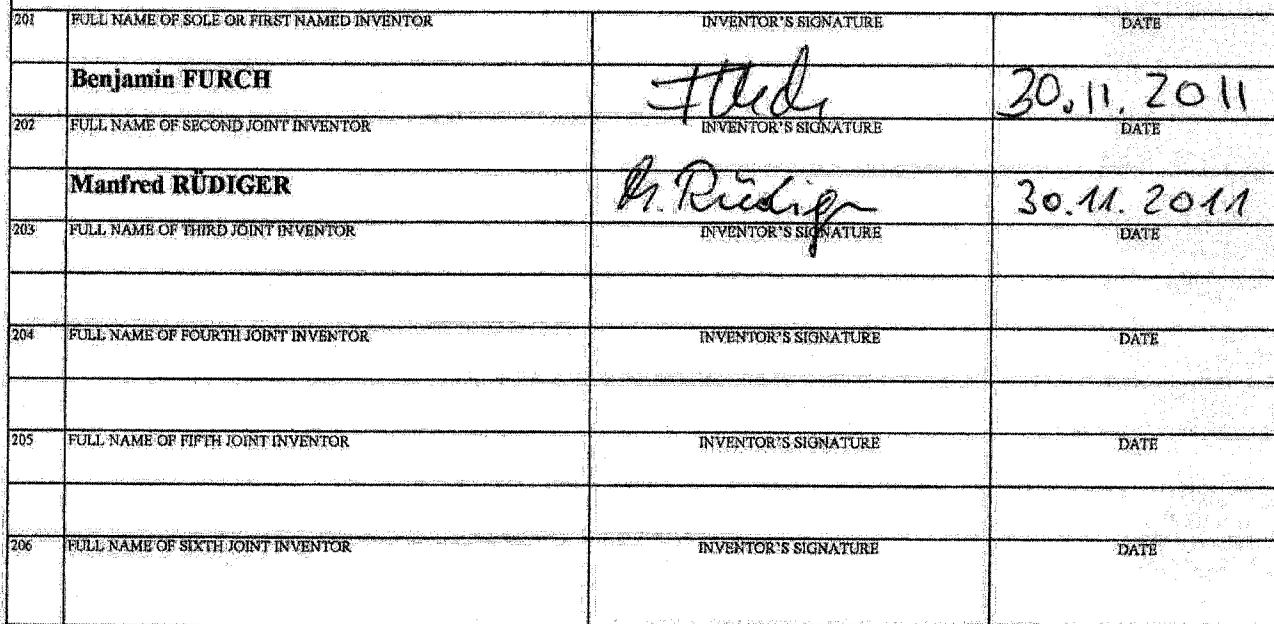 201 FULL NAME OF SOLE OR FIRST NAMED INVENTOR INVENTOR'S SIGNATURE DATE
Benjamin FURCH 30.11.2011
202 FULL NAME OF SECOND JOINT INVENTOR INVENTOR'S SIGNATURE DATE
Manfred RÜDIGER M. Rüdiger 30.11.2011
203 FULL NAME OF THIRD JOINT INVENTOR INVENTOR'S SIGNATURE DATE
204 FULL NAME OF FOURTH JOINT INVENTOR INVENTOR'S SIGNATURE DATE
205 FULL NAME OF FIFTH JOINT INVENTOR INVENTOR'S SIGNATURE DATE
206 FULL NAME OF SIXTH JOINT INVENTOR INVENTOR'S SIGNATURE DATE